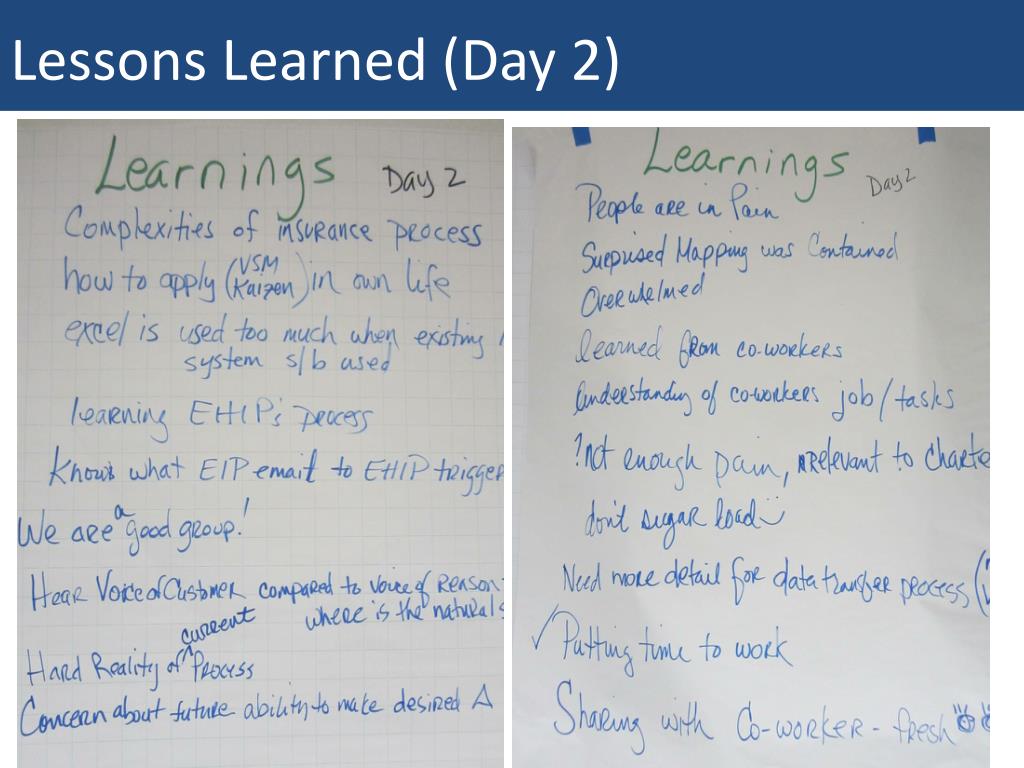 Lessons Learned (Day 2)
Learnings Day 2
Complexities of insurance process
how to apply (VSM Kaizen) in own life
excel is used too much when existing
system s/b used
learning EHIP's process
Knows what EIP email to EHIP trigger
We are a good group!
Hear Voice of Customer compared to Voice of Reason
where is the natural
Hard Reality of current Process
Concern about future ability to make desired Δ
Learnings Day 2
People are in Pain
Surprised Mapping was Contained
Overwhelmed
learned from co-workers
Understanding of co-workers job/tasks
? not enough pain, relevant to Charte
don't sugar load
Need more detail for data transfer process (
✓ Putting time to work
Sharing with Co-worker - fresh